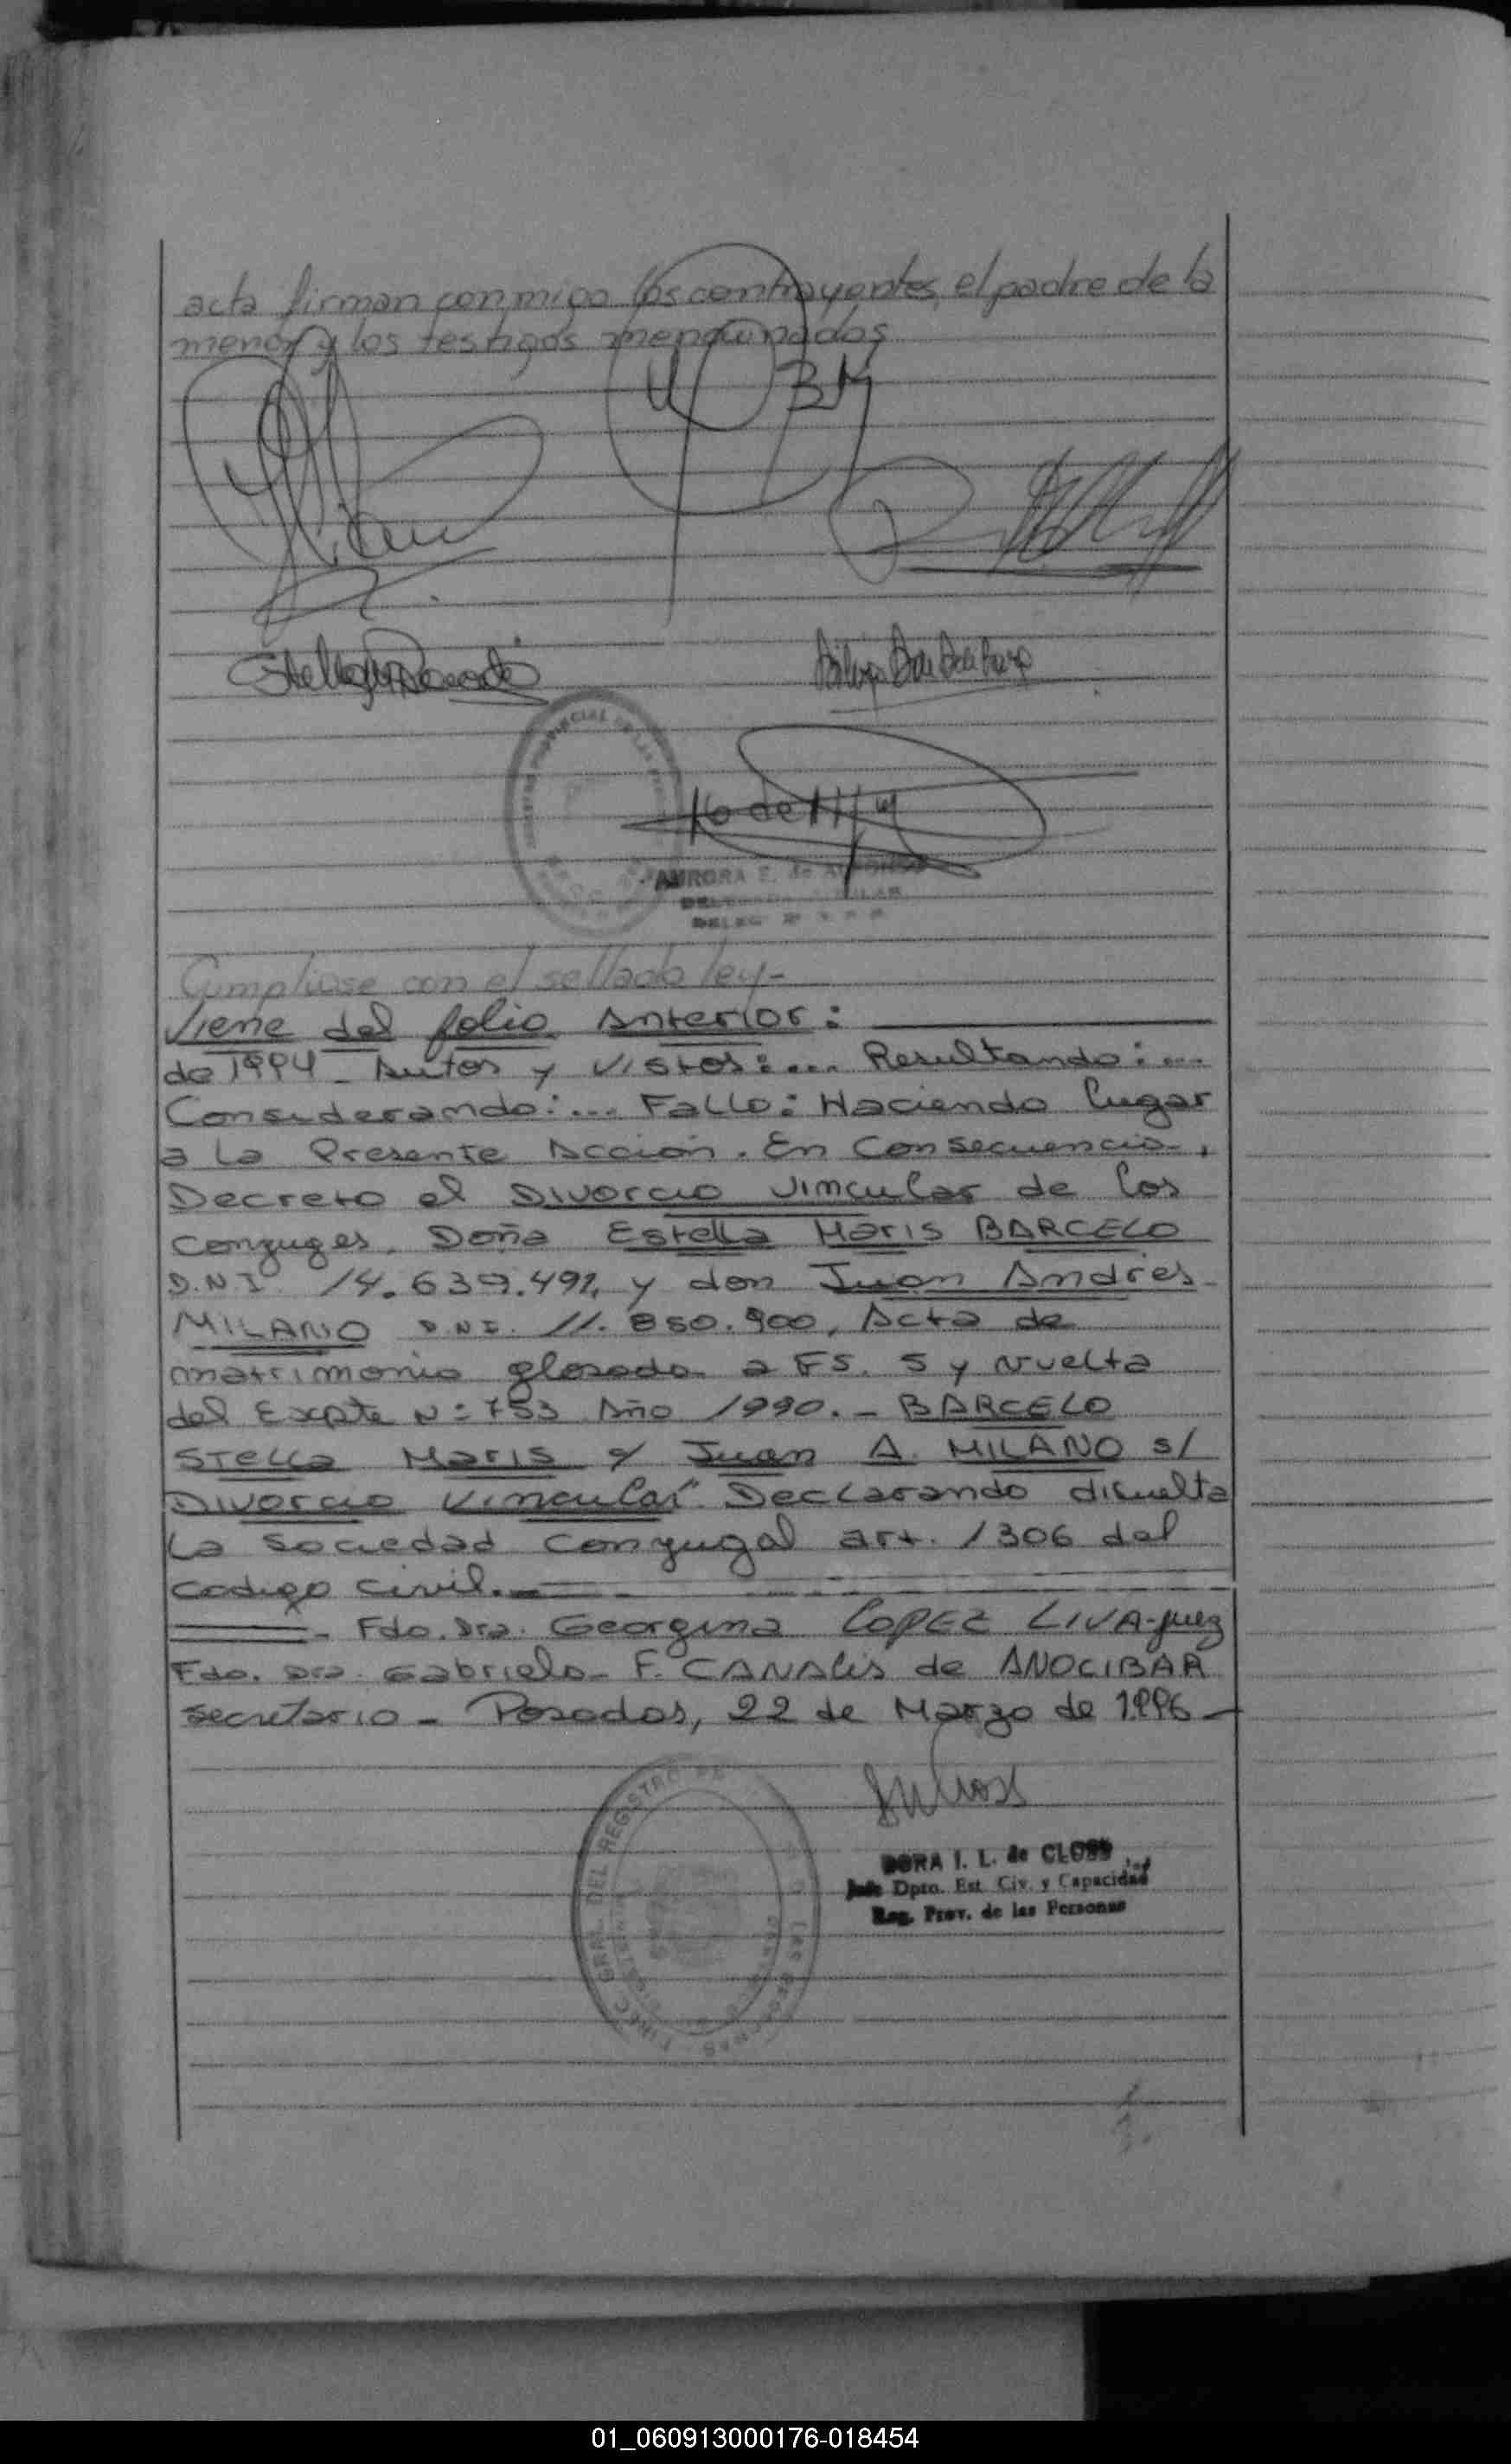 acta firman conmigo los contrayentes, el padre de la
menor y los testigos mencionados
AURORA E. de
Cumpliose con el sellado ley-
Viene del folio Anterior:
de 1994 - Autos y Vistos:... Resultando:...
Considerando:... Fallo: Haciendo lugar
a la Presente Acción. En Consecuencia,
Decreto el Divorcio Vincular de los
conyuges, Doña Estella Maris BARCELO
D.N.I. 14.639.491, y don Juan Andres
MILANO D.N.I. 11.850.900, Acta de
matrimonio glosada a FS. 5 y vuelta
del Expte N: 753 Año 1990.- BARCELO
Stella Maris c/ Juan A. MILANO s/
Divorcio Vincular. Declarando disuelta
la Sociedad Conyugal art. 1306 del
Codigo Civil.-
- Fdo. Dra. Georgina LOPEZ LIVA-juez
Fdo. Dra. Gabriela F. CANALIS de ANOCIBAR
secretario - Posadas, 22 de Marzo de 1996-
DORA I. L. de CLOSS
Jefe Dpto. Est. Civ. y Capacidad
Reg. Prov. de las Personas
DIREC. GRAL. DEL REGISTRO DE LAS PERSONAS
01_060913000176-018454